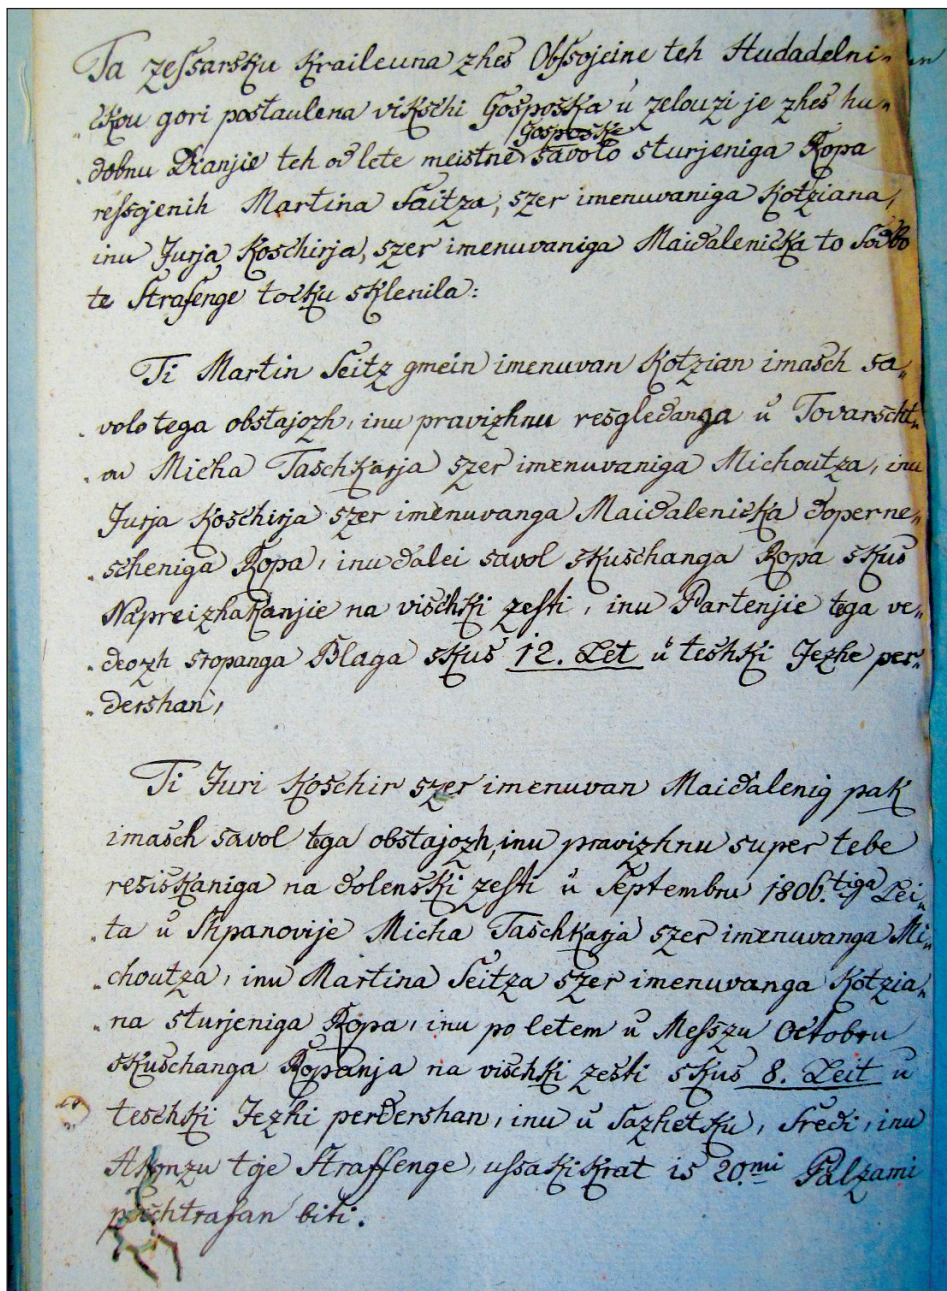 Ta zessarsku Kraileuna zhes Obssojeine teh Hudadelni„
„kou gori postaulena vikschi Gosposka u zelouzi je zhes hu„
Gosposke
„dobnu Dianjie teh od lete meistne savolo sturjeniga Ropa
ressojenih Martina Saitza, szer imenuvaniga Kotziana,
inu Jurja Koschirja, szer imenuvaniga Maidalenicka to Sodbo
te Strafenge tocku sklenila:
Ti Martin Seitz gmein imenuvan Kotzian imasch sa„
„volo tega obstajozh, inu pravizhnu resgledanga u Tovarscht„
„vu Micha Taschkarja szer imenuvaniga Michoutza, inu
Jurja Koschirja szer imenuvanga Maidalenicka doperne„
„scheniga Ropa, inu dalei savol skuschanga Ropa skus
Napreizhakanjie na vischki zesti, inu Partenjie tega ve„
„deozh ropanga Blaga skus 12. Let u teshki Jezhe per„
„dershan,
Ti Juri Koschir szer imenuvan Maidalenig pak
imasch savol tega obstajozh, inu pravizhnu super tebe
resiskaniga na dolenski zesti u Septembru 1806.tiga Lei„
„ta u Shpanovije Micha Taschkarja szer imenuvanga Mi„
„choutza, inu Martina Seitza szer imenuvanga Kotzia„
„na sturjeniga Ropa, inu po letem u Messzu Octobru
skuschanga Ropanja na vischki zesti skus 8. Leit u
teschki Jezhi perdershan, inu u Sazhetku, Sredi, inu
Konzu toje Straffenge, ussakikrat is 20.mi Palzami
poschtrafan biti.